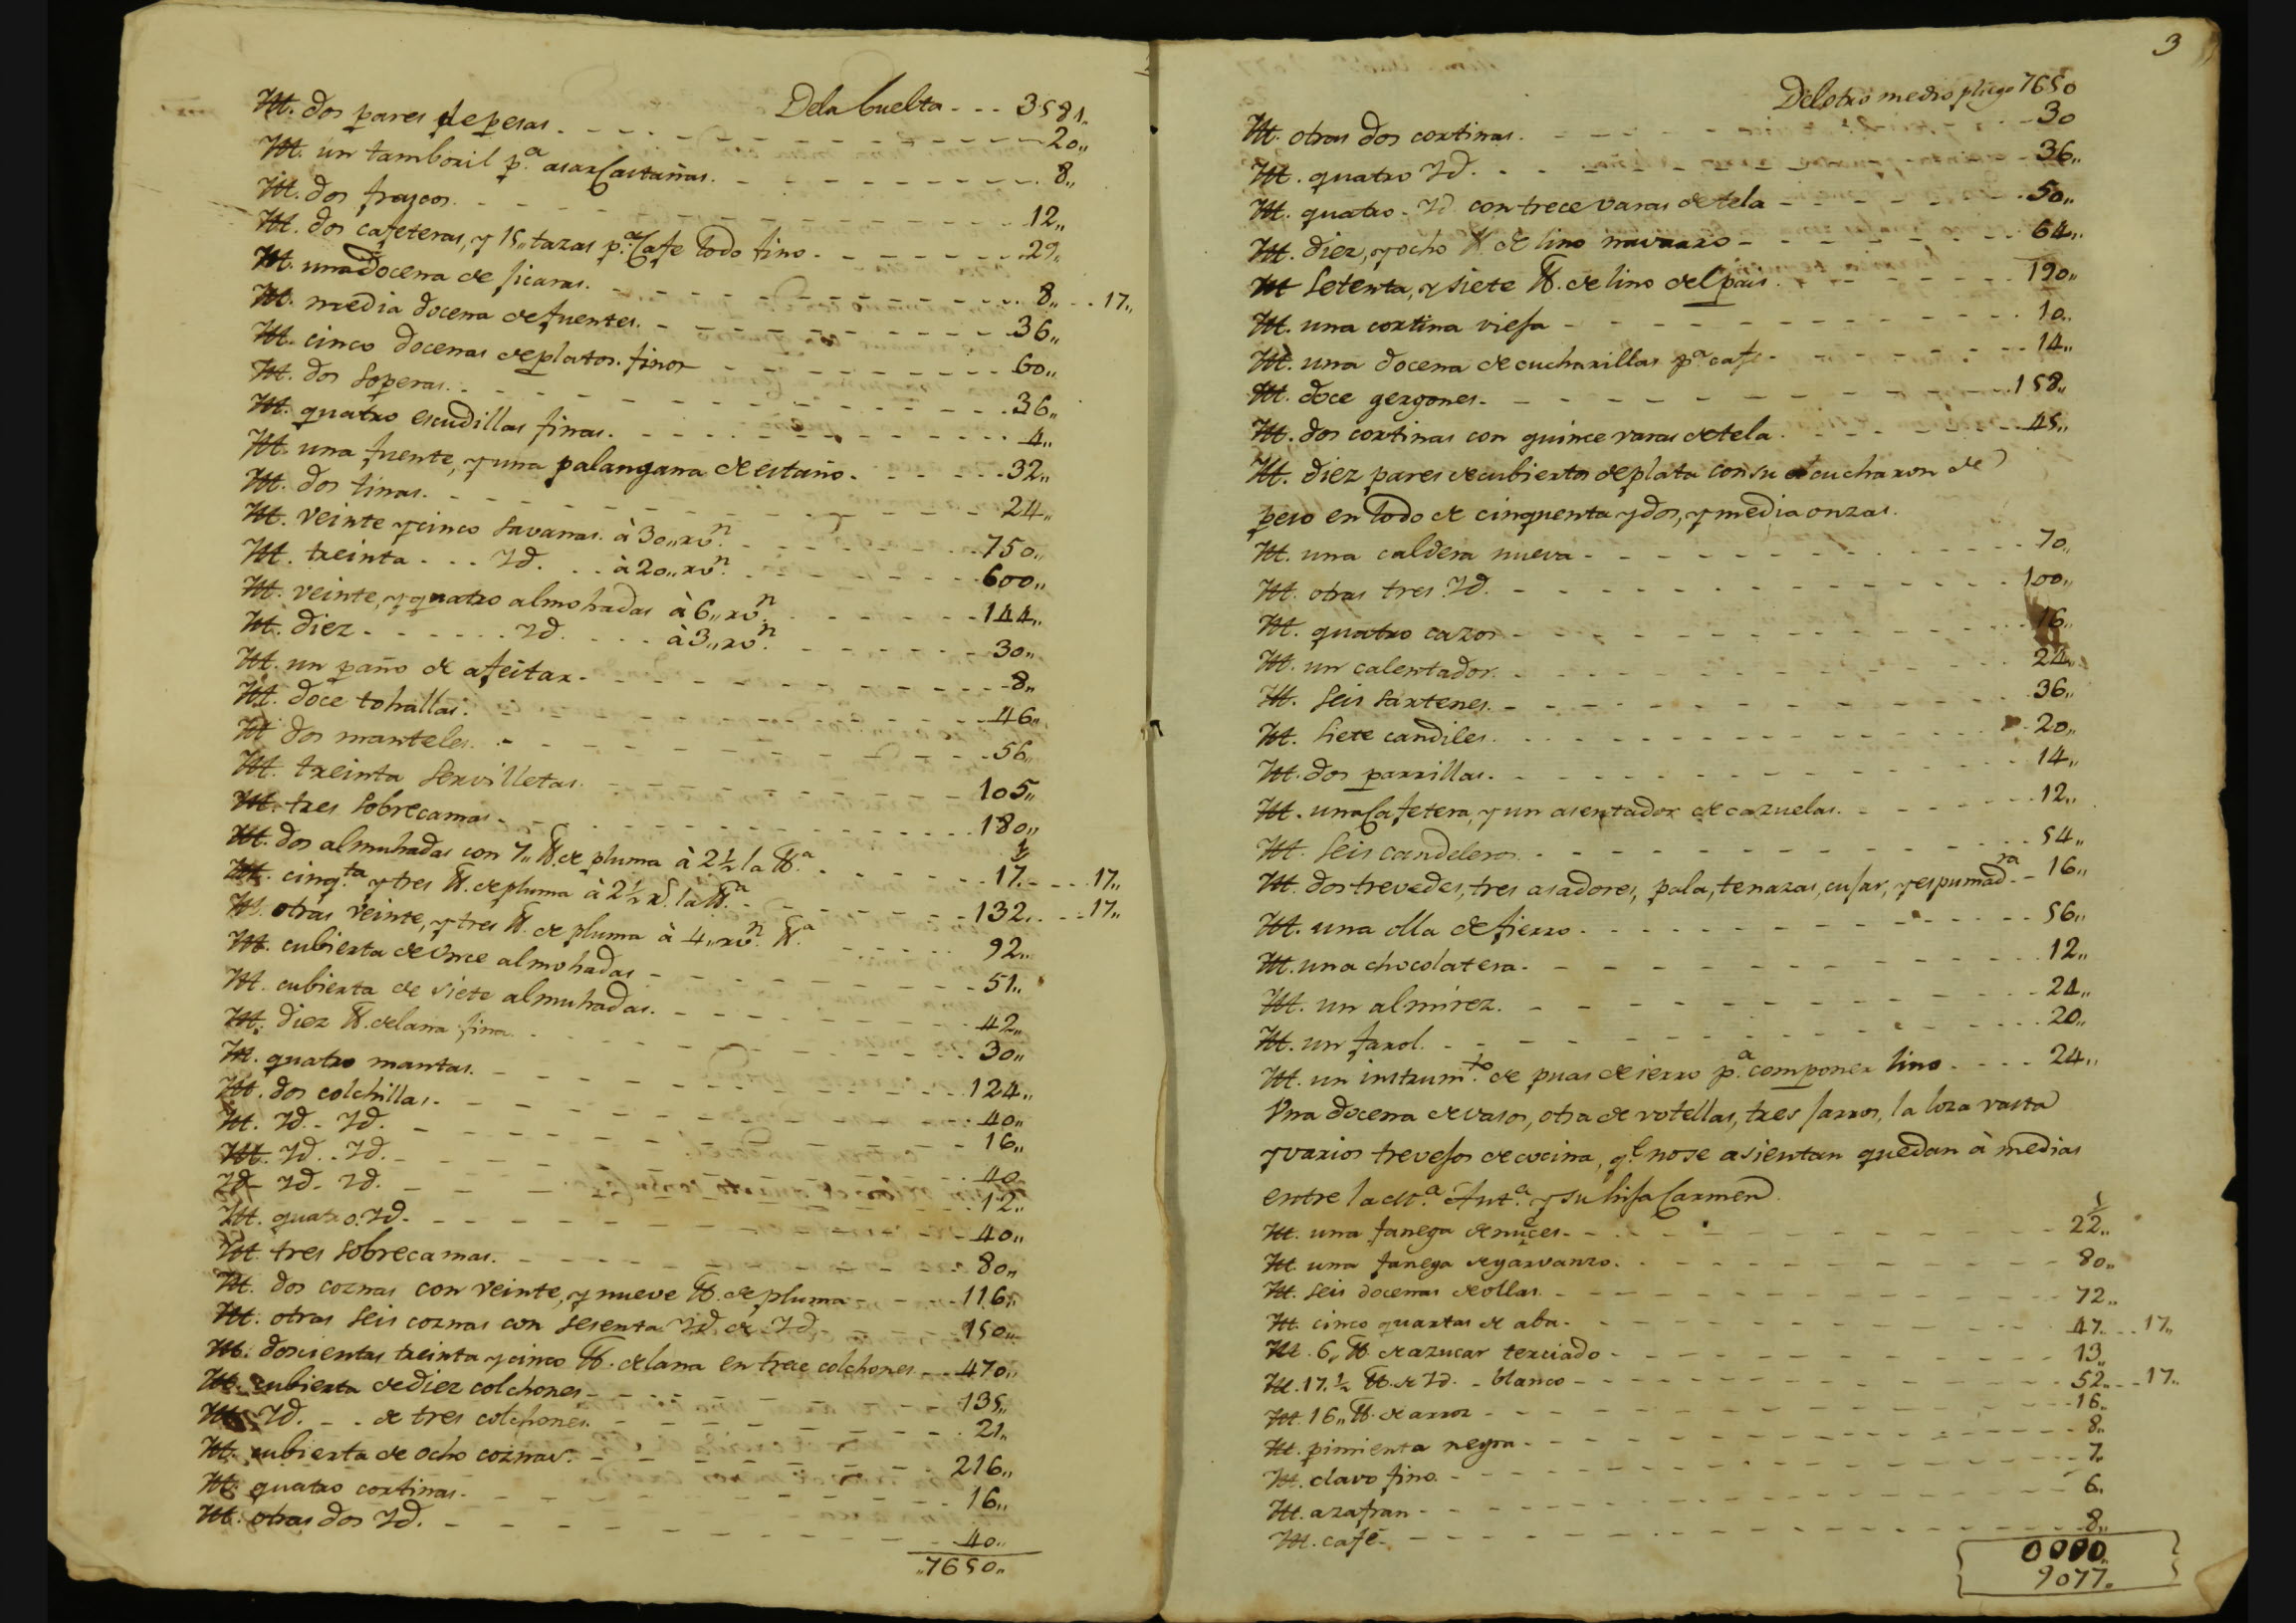 Dela buelta - - - 3581,,
Ytt. dos pares de pesas. - - - 20,,
Ytt. un tamboril p.ª asar Castañas. - - - 8,,
Ytt. dos frascos. - - - 12,,
Ytt. dos cafeteras, y 15,, tazas p.ª Cafe todo fino - - - 29,,
Ytt. una docena de jicaras. - - - 8,, - - 17,,
Ytt. media docena de fuentes. - - - 36,,
Ytt. cinco docenas de platos finos - - - 60,,
Ytt. dos soperas. - - - 36,,
Ytt. quatro escudillas finas. - - - 4,,
Ytt. una fuente, y una palangana de estaño. - - - 32,,
Ytt. dos tinas. - - - 24,,
Ytt. veinte y cinco savanas. à 30,, rv.n - - - 750,,
Ytt. treinta - - - Yd. - - à 20,, rv.n - - - 600,,
Ytt. veinte, y quatro almohadas à 6,, rv.n - - - 144,,
Ytt. diez - - - Yd. - - - à 3,, rv.n - - - 30,,
Ytt. un paño de afeitar - - - 8,,
Ytt. doce tohallas. - - - 46,,
Ytt dos manteles. - - - 56,,
Ytt. treinta servilletas. - - - 105,,
Ytt. tres sobrecamas - - - 180,,
Ytt. dos almuhadas con 7,, lb. de pluma à 2 1/2 la lb.ª - - - 17. - - - 17,,
Ytt. cinq.ta y tres lb. de pluma à 2 1/2 rs. la lb.ª - - - 132,, - - 17,,
Yt. otras veinte, y tres lb. de pluma à 4,, rv.n lb.ª - - - 92,,
Ytt. cubierta de once almohadas - - - 51,,
Ytt. cubierta de siete almuhadas. - - - 42,,
Ytt. diez lb. de lana fina - - - 30,,
Ytt. quatro mantas. - - - 124,,
Ytt. dos colchillas. - - - 40,,
Ytt. Yd. - Yd. - - - 16,,
Ytt. Yd. - Yd. - - - 40
Yd - Yd - Yd. - - - 12,,
Ytt. quatro. Yd. - - - 40,,
Ytt. tres sobrecamas. - - - 80,,
Ytt. dos coznas con veinte, y nueve lb. de pluma - - - 116,,
Ytt. otras seis coznas con sesenta Yd de Yd. - - - 150,,
Ytt. doscientas treinta y cinco lb. de lana en trece colchones - - - 470,,
Ytt. cubierta de diez colchones - - - 135,,
Ytt. Yd. - - de tres colchones. - - - 21,,
Ytt. cubierta de ocho coznas. - - - 216,,
Ytt. quatro cortinas. - - - 16,,
Ytt. otras dos Yd. - - - 40,,
,,7650,,
3
Del otro medio pliego 7650
Ytt. otras dos cortinas. - - - 30
Ytt. quatro Yd. - - - 36,,
Ytt. quatro - Yd con trece varas de tela - - - 50,,
Ytt. diez, y ocho lb. de lino navarro - - - 64,,
Ytt Setenta, y siete lb. de lino del pais. - - - 190,,
Ytt. una cortina vieja - - - 10,,
Ytt. una docena de cucharillas p.ª cafe - - - 14,,
Ytt. doce gergones. - - - 158,,
Ytt. dos cortinas con quince varas de tela. - - - 45,,
Ytt. diez pares de cubiertos de plata con su cucharon de
peso en todo de cinquenta y dos, y media onzas.
Ytt. una caldera nueva - - - 70,,
Ytt. otras tres Yd. - - - 100,,
Ytt. quatro cazos - - - 16,,
Ytt. un calentador. - - - 24,,
Ytt. Seis sartenes. - - - 36,,
Ytt. Siete candiles. - - - 20,,
Ytt. dos parrillas. - - - 14,,
Ytt. una Cafetera, y un asentador de cazuelas. - - - 12,,
Ytt. Seis candeleros. - - - 54,,
Ytt. dos trevedes, tres asadores, pala, tenazas, cusar, y espumad.ra - 16,,
Ytt. una olla de fierro. - - - 56,,
Ytt. una chocolatera. - - - 12,,
Ytt. un almirez. - - - 24,,
Ytt. un farol. - - - 20,,
Ytt. un instrum.to de puas de ierro p.ª componer lino. - - - 24,,
Una docena de vasos, otra de votellas, tres jarros, la loza vasta
y varios trevejos de cocina, q.e no se asientan quedan à medias
entre la dh.ª Ant.ª y su hija Carmen.
Ytt. una fanega de nuces - - - 22,,
Ytt. una fanega de garvanzo. - - - 80,,
Ytt. seis docenas de ollas. - - - 72,,
Ytt. cinco quartas de aba. - - - 47. - - 17,,
Ytt. 6,, lb. de azucar terciado - - - 13,,
Ytt. 17. 1/2 lb. de Yd. - blanco - - - 52,, - - 17,,
Ytt. 16,, lb. de arroz - - - 16,,
Ytt. pimienta negra. - - - 8,,
Ytt. clavo fino. - - - 7,,
Ytt. azafran - - - 6,,
Ytt. cafe. - - - 8,,
0000,,
9077,,